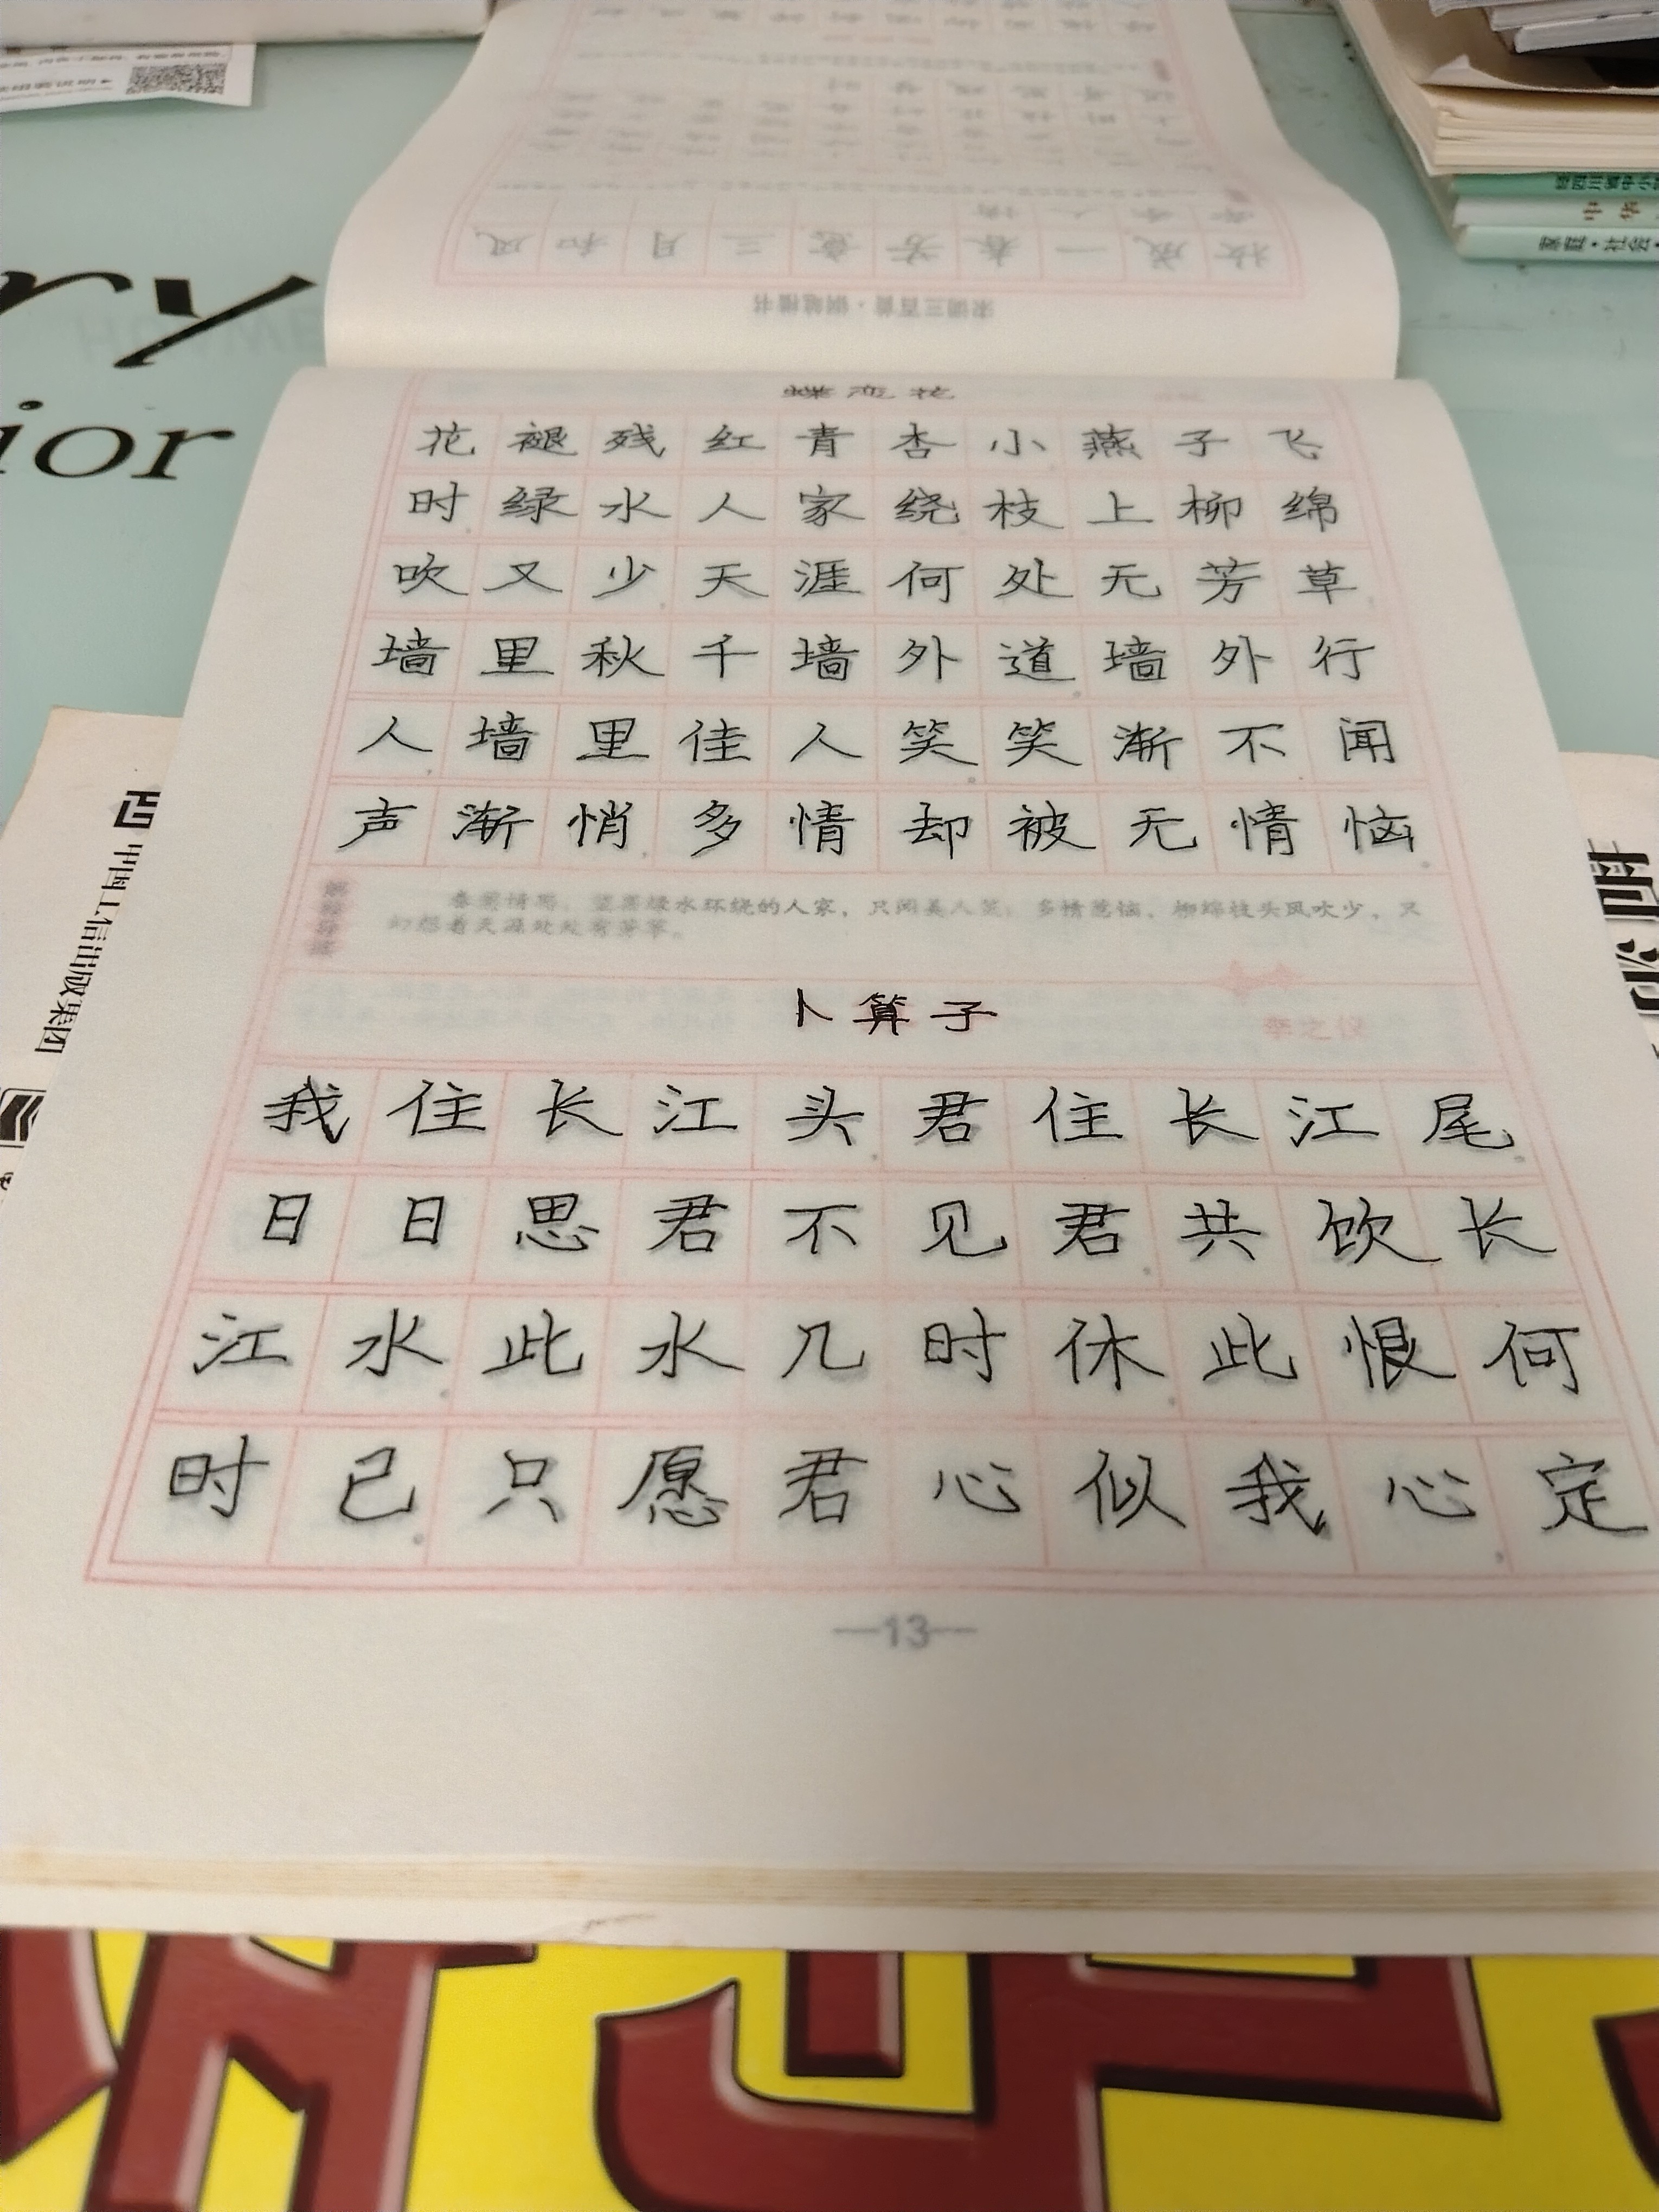 蝶恋花
花褪残红青杏小燕子飞
时绿水人家绕枝上柳绵
吹又少天涯何处无芳草
墙里秋千墙外道墙外行
人墙里佳人笑笑渐不闻
声渐悄多情却被无情恼
春景情思,望票绿水环绕的人家,只闻美人笑,多情惹恼,柳绵枝头风吹少,又
幻想着天涯处处有芳草。
卜算子
李之仪
我住长江头君住长江尾
日日思君不见君共饮长
江水此水几时休此恨何
时已只愿君心似我心定
—13—
宋词三百首·钢笔楷书
中国工信出版集团
ry
ior